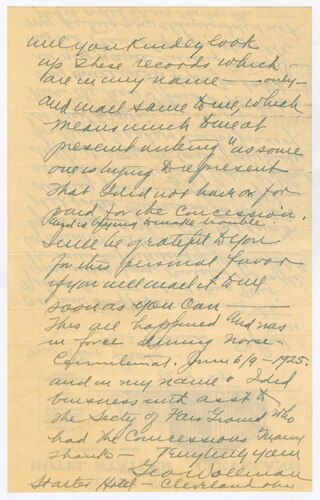 will you kindly look
up these records which
are in my name — only —
and mail same to me, which
means much to me at
present writing "as some
one is trying to represent
that I did not have or for
paid for the concession.
and is trying to make trouble
I will be grateful to you
for this personal favor
if you will mail it to me
soon as you can —
This all happened and was
in force during Norse
Centennial. June 6/9 – 1925.
and in my name & I did
business with asst &
the Secty of Fair Ground who
had the concessions "Many
thanks — Truly yours
Geo Wollman
Hotel — Cleveland Ohio